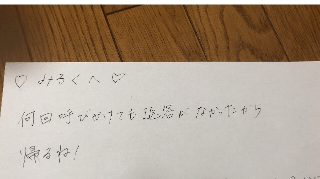 ♡ みろくへ ♡
何回呼びかけても返答がなかったから
帰るね!